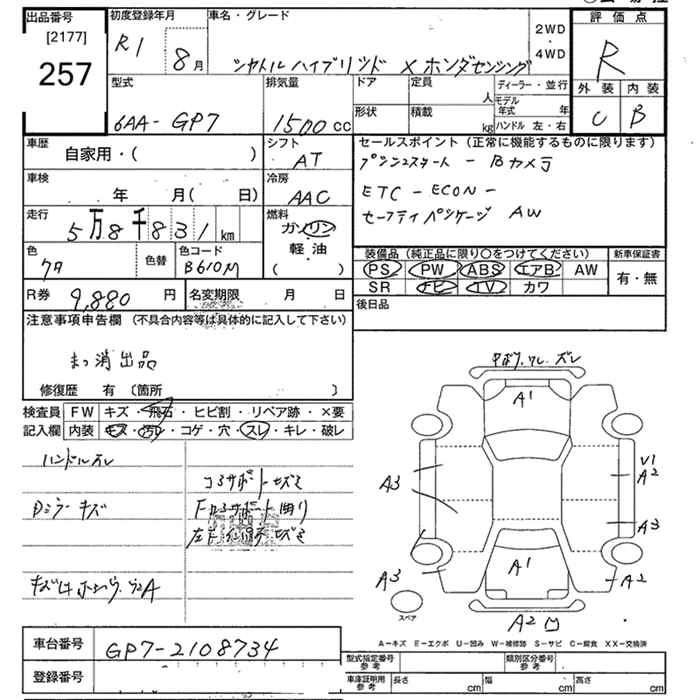 出品番号
[2177]
257
初度登録年月
R1 8月
車名・グレード
シャトルハイブリッド X ホンダセンシング
2WD
・
4WD
評価点
R
外装 内装
C B
型式
6AA-GP7
排気量
1500cc
ドア
定員
人
ディーラー・並行
形状
積載
kg
モデル年式 年
ハンドル 左・右
車歴
自家用・( )
シフト
AT
セールスポイント (正常に機能するものに限ります)
プッシュスタート - Bカメラ
ETC - ECON -
セーフティパッケージ AW
車検
年 月( 日)
冷房
AAC
走行
5万8千831km
燃料
ガソリン
軽・油
( )
色
クロ
色替
色コード
B610M
装備品 (純正品に限り○をつけてください)
PS PW ABS エアB AW
SR ナビ TV カワ
新車保証書
有・無
R券 9,880円
名変期限 月 日
後日品
注意事項申告欄 (不具合内容等は具体的に記入して下さい)
まっ消出品
修復歴 有 〔箇所 〕
検査員記入欄
FW キズ・飛石・ヒビ割・リペア跡・×要
内装 キズ・汚レ・コゲ・穴・スレ・キレ・破レ
ハンドルスレ
コアサポートズミ
Dミラーキズ
Fコアサポート曲り
左Fインパネ ズミ
A1
A3
V1
A2
A3
A3
A1
A2
A2
スペア
A-キズ E-エクボ U-凹み W-補修跡 S-サビ C-腐食 XX-交換済
車台番号
GP7-2108734
登録番号
型式指定番号 参考
類別区分番号 参考
車庫証明用 参考
長さ cm 幅 cm 高さ cm